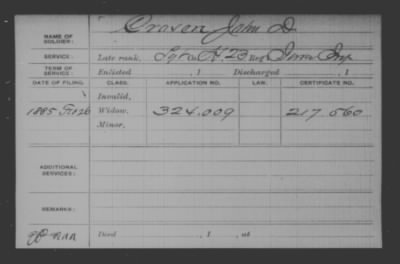 NAME OF SOLDIER: Croxen John D.
SERVICE: Late rank, Sgt Co. H, 23 Reg't Iowa Inf
TERM OF SERVICE: Enlisted , 1 Discharged , 1
DATE OF FILING. CLASS. APPLICATION NO. LAW. CERTIFICATE NO.
Invalid,
1885 Widow, 324.009 217.560
Minor,
ADDITIONAL SERVICES:
REMARKS:
Died , 1 , at